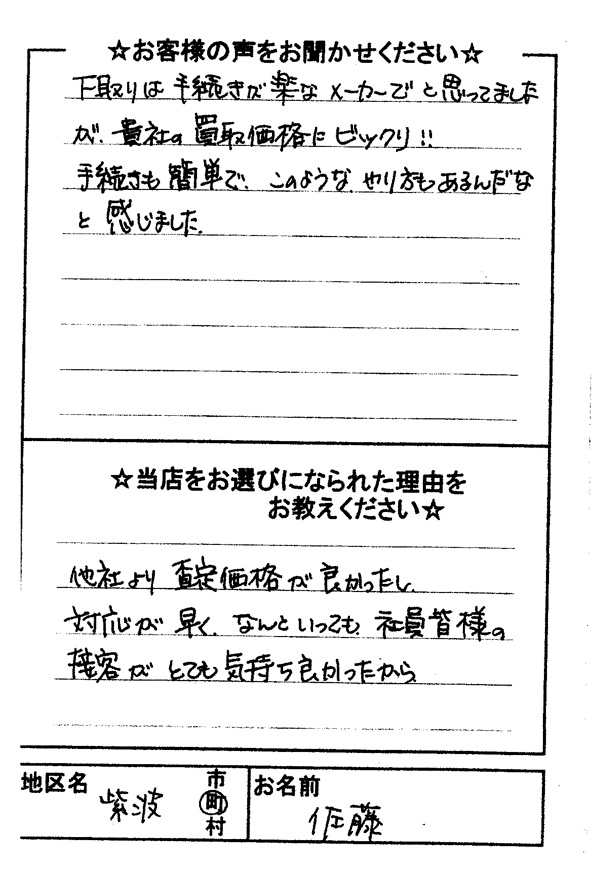 ☆お客様の声をお聞かせください☆
下取りは手続きが楽なメーカーでと思ってました
が、貴社の買取価格にビックリ!!
手続きも簡単で、このようなやり方もあるんだな
と感じました。
☆当店をお選びになられた理由を
お教えください☆
他社より査定価格が良かったし、
対応が早く、なんといっても、社員皆様の
接客がとても気持ち良かったから
地区名 紫波 市町村 お名前 佐藤